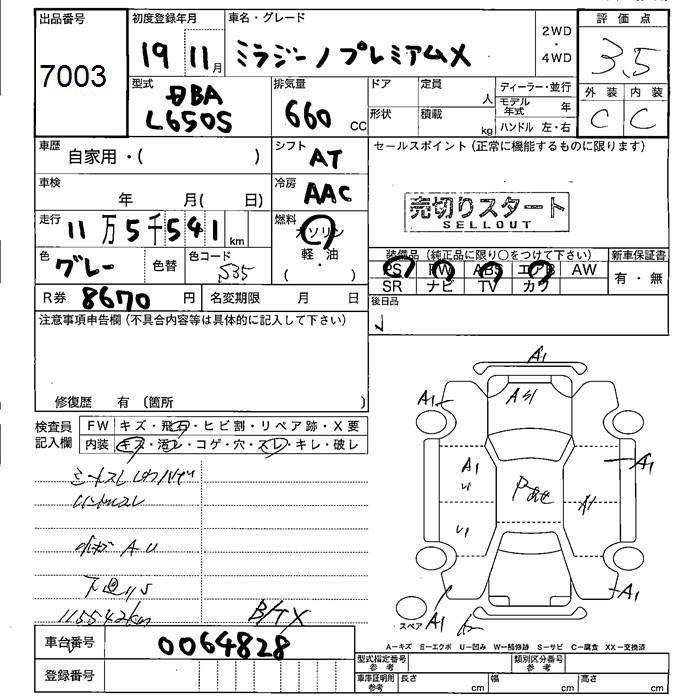 出品番号 7003
初度登録年月 19 11月
車名・グレード ミラジーノプレミアムX
2WD・4WD
評価点 3.5
外装 C 内装 C
型式 DBA L650S
排気量 660 CC
ドア 形状
定員 人
積載 kg
ディーラー・並行
モデル年式 年
ハンドル 左・右
車歴 自家用・( )
シフト AT
セールスポイント(正常に機能するものに限ります)
車検 年 月( 日)
冷房 AAC
売切りスタート
SELLOUT
走行 11万5千541km
燃料 ガソリン・軽油 ( )
色 グレー 色替 色コード S35
装備品(純正品に限り○をつけて下さい)
PS PW ABS エアB AW
SR ナビ TV カワ
新車保証書 有・無
R券 8670円
名変期限 月 日
後日品
注意事項申告欄(不具合内容等は具体的に記入して下さい)
修復歴 有 〔箇所 〕
検査員記入欄
FW キズ・飛石・ヒビ割・リペア跡・X要
内装 キズ・汚レ・コゲ・穴・スレ・キレ・破レ
AU
下廻りS
115542km
A1
A1
A1
A1
A1
A1
A1
A1
スペア
A-キズ E-エクボ U-凹み W-補修跡 S-サビ C-腐食 XX-交換済
車台番号 0064828
登録番号
型式指定番号 参考
類別区分番号 参考
車庫証明用 参考 長さ cm 幅 cm 高さ cm